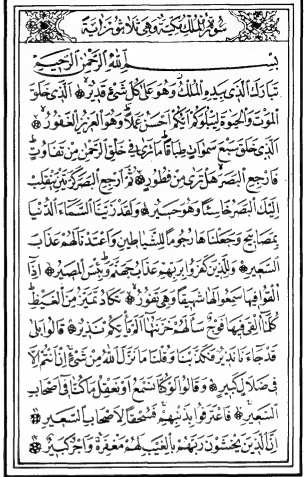 سورة الملك مكية وهى ثلاثون اية
بسم الله الرحمن الرحيم
تبارك الذى بيده الملك وهو على كل شئ قدير الذى خلق
الموت والحيوة ليبلوكم ايكم احسن عملا وهو العزيز الغفور
الذى خلق سبع سموات طباقا ما ترى فى خلق الرحمن من تفاوت
فارجع البصر هل ترى من فطور ثم ارجع البصر كرتين ينقلب
اليك البصر خاسئا وهو حسير ولقد زينا السماء الدنيا
بمصابيح وجعلناها رجوما للشياطين واعتدنا لهم عذاب
السعير وللذين كفروا بربهم عذاب جهنم وبئس المصير اذا
القوا فيها سمعوا لها شهيقا وهى تفور تكاد تميز من الغيظ
كلما القى فيها فوج سالهم خزنتها الم ياتكم نذير قالوا بلى
قد جاءنا نذير فكذبنا وقلنا ما نزل الله من شئ ان انتم الا
فى ضلال كبير وقالوا لو كنا نسمع او نعقل ما كنا فى اصحاب
السعير فاعترفوا بذنبهم فسحقا لاصحاب السعير
ان الذين يخشون ربهم بالغيب لهم مغفرة واجر كبير